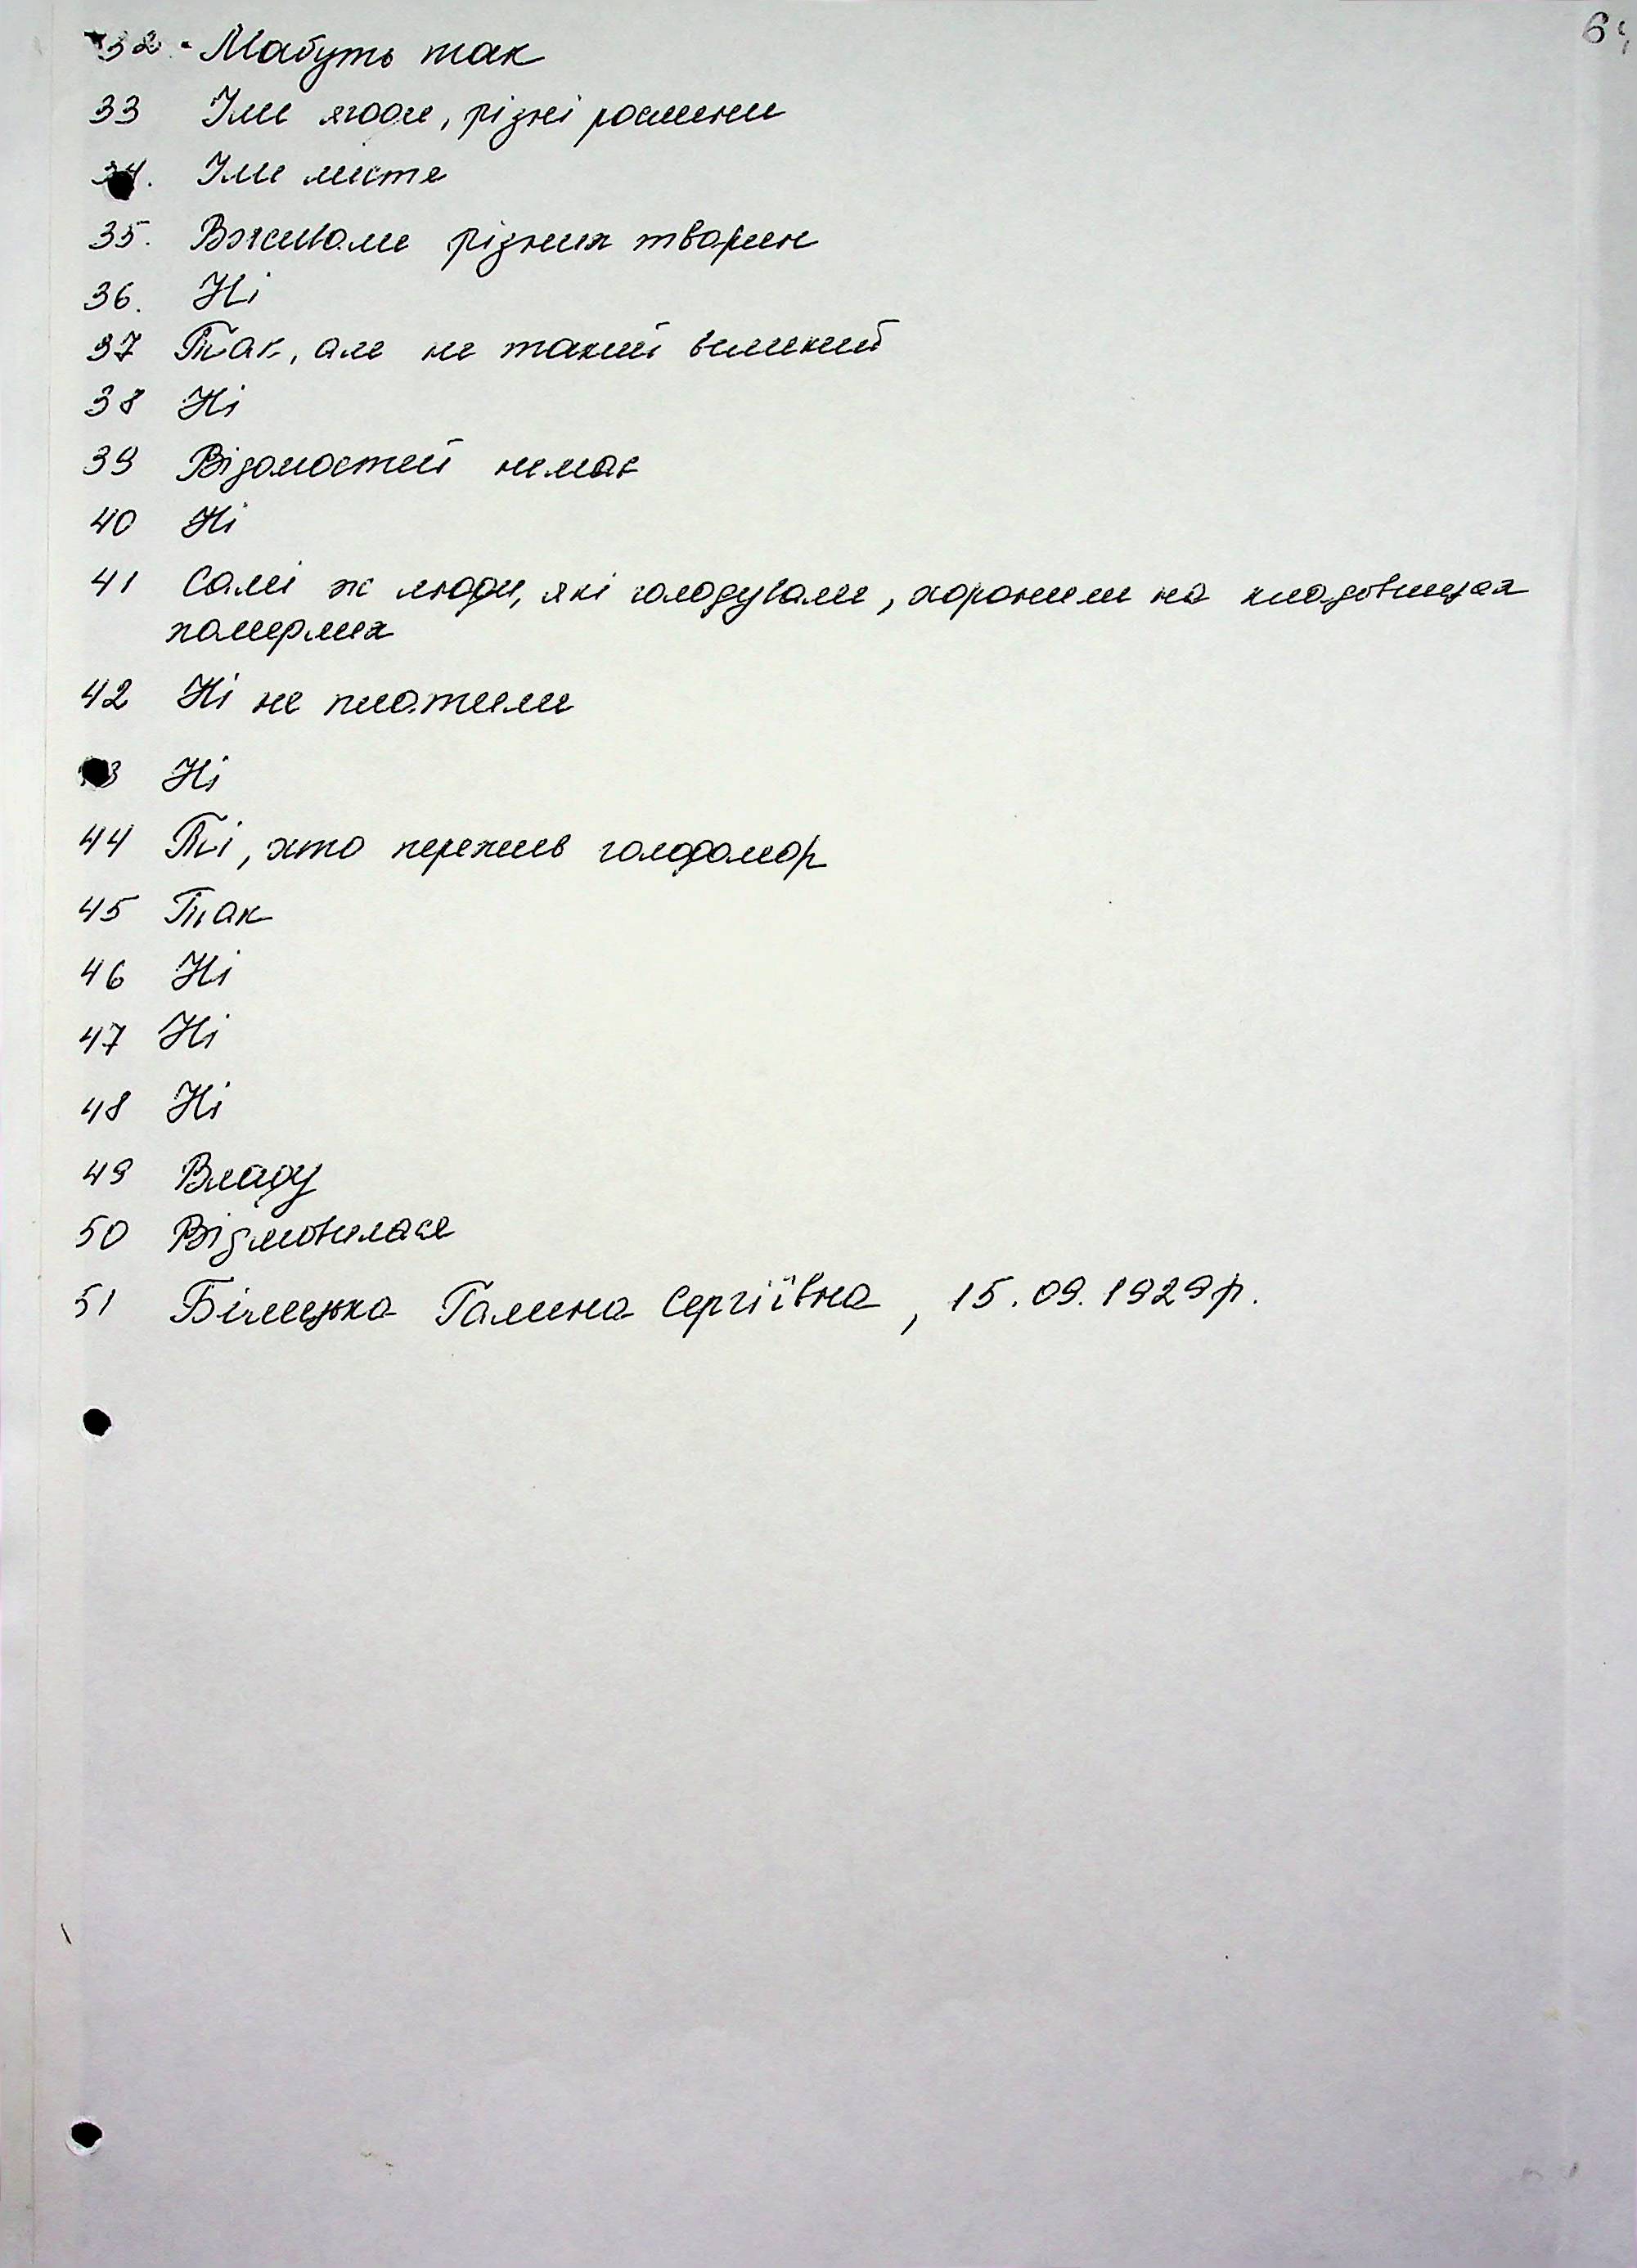 32. Мабуть так
33 Їли ягоди, різні рослини
34. Їли листя
35. Вживали різних тварин
36. Ні
37 Так, але не такий великий
38 Ні
39 Відомостей немає
40 Ні
41 Самі ж люди, які голодували, хоронили на кладовищах
померлих
42 Ні не платили
43 Ні
44 Ті, хто пережив голодомор
45 Так
46 Ні
47 Ні
48 Ні
49 Владу
50 Відмовилася
51 Білецька Галина Сергіївна, 15.09.1929р.